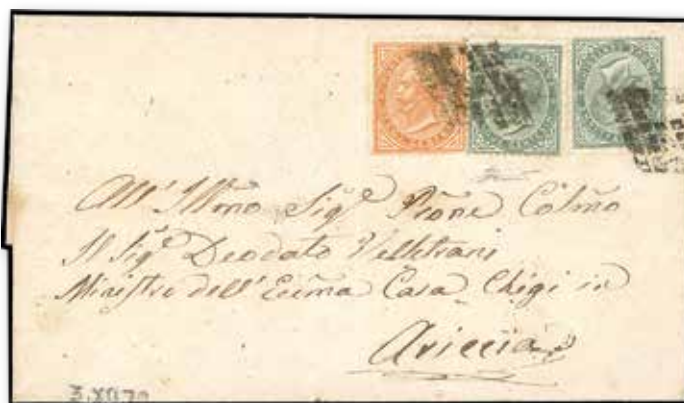 All' Illmo Sig.e Prone Colmo
Il Sig.e Deodato Velletrani
Ministro dell' Eccma Casa Chigi in
Ariccia